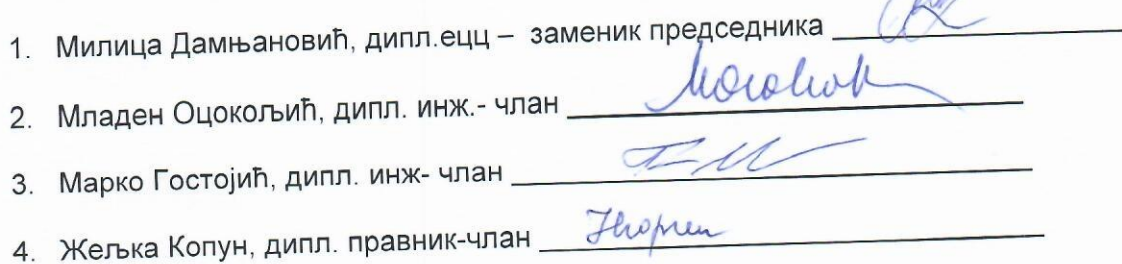 1. Милица Дамњановић, дипл.ецц – заменик председника
2. Младен Оцокољић, дипл. инж.- члан
3. Марко Гостојић, дипл. инж- члан
4. Жељка Копун, дипл. правник-члан